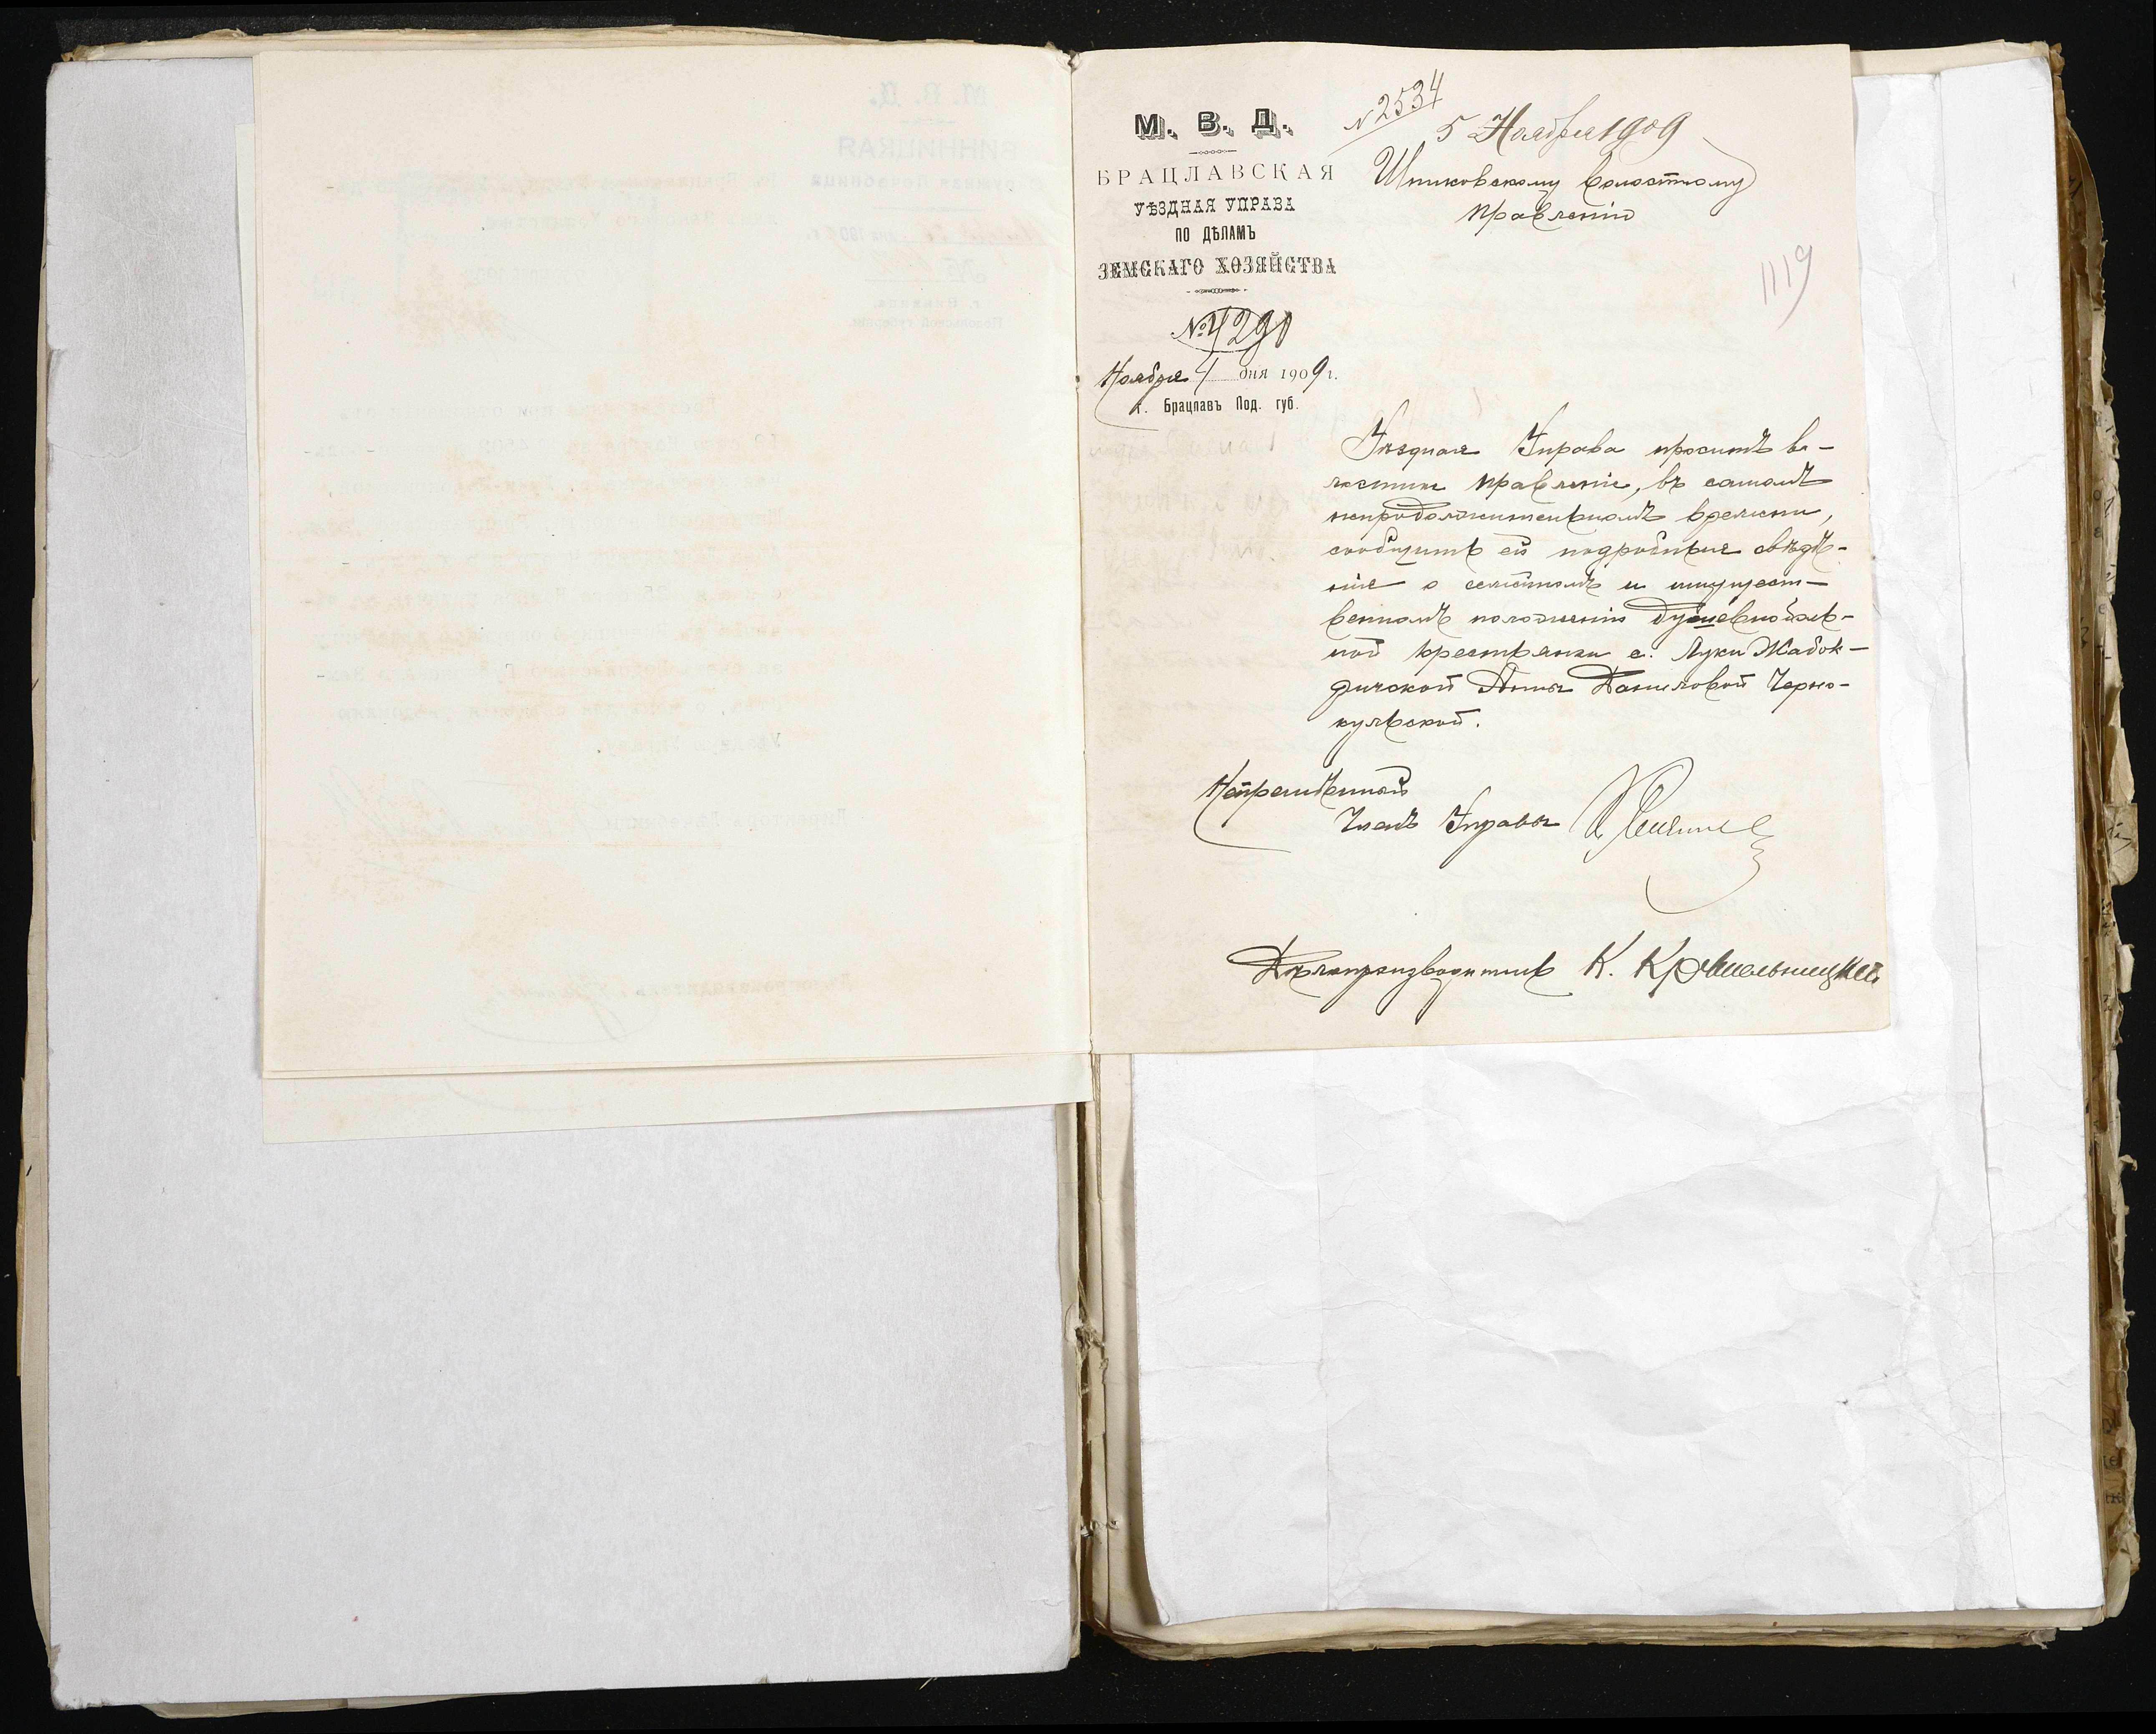 М. В. Д.
БРАЦЛАВСКАЯ
УѢЗДНАЯ УПРАВА
ПО ДѢЛАМЪ
ЗЕМСКАГО ХОЗЯЙСТВА
№ 4290
Ноября 4 дня 1909 г.
г. Брацлавъ Под. губ.
N 2534
5 Ноября 1909
Шпиковскому Волостному
Правленію
1119
Уѣздная Управа проситъ во-
лостное Правленіе, въ самомъ
непродолжительномъ времени,
сообщить ей подробныя свѣдѣ-
нія о семейномъ и имущест-
венномъ положеніи душевноболь-
ной крестьянки с. Луки Жабок-
ричской Анны Даниловой Черно-
кульской.
Непремѣнный
Членъ Управы
Дѣлопроизводитель К.